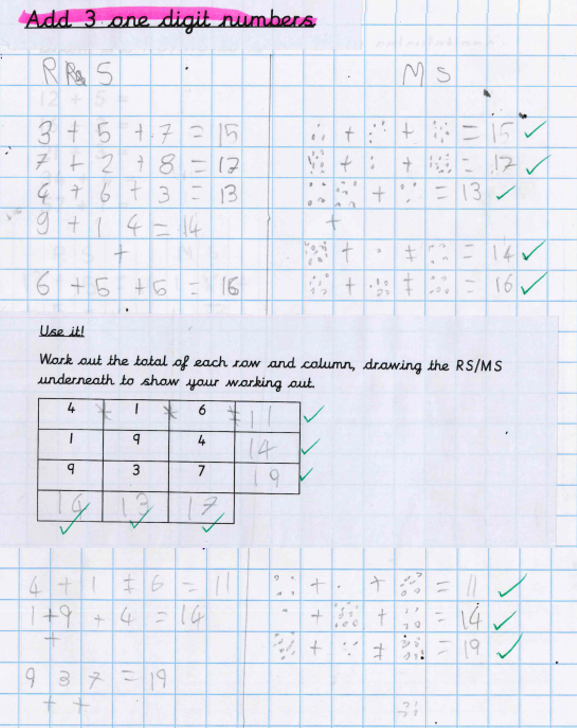 Add 3 one digit numbers
R S M S
3 + 5 + 7 = 15 + + = 15
7 + 2 + 8 = 17 + + = 17
4 + 6 + 3 = 13 + = 13
9 + 1 4 = 14 +
+ + + = 14
6 + 5 + 5 = 16 + + = 16
Use it!
Work out the total of each row and column, drawing the RS/MS
underneath to show your working out.
4 + 1 + 6 = 11
1 9 4 14
9 3 7 19
14 13 17
4 + 1 + 6 = 11 + + = 11
1 + 9 + 4 = 14 + + = 14
+ + + = 19
9 3 7 = 19
+ +